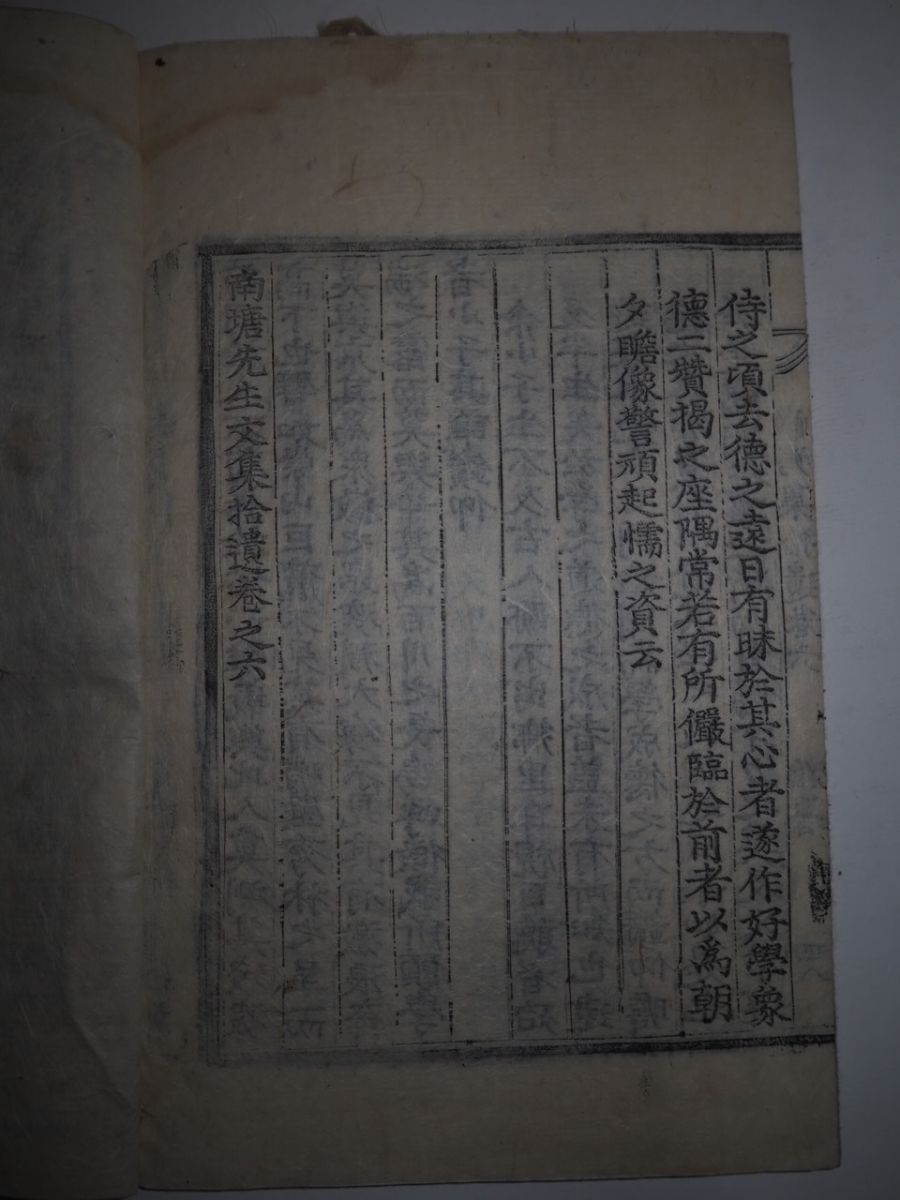 侍之頃去德之遠日有眛於其心者遂作好學象
德二贊揭之座隅常若有所儼臨於前者以爲朝
夕瞻像警頑起懦之資云
南塘先生文集拾遺卷之六